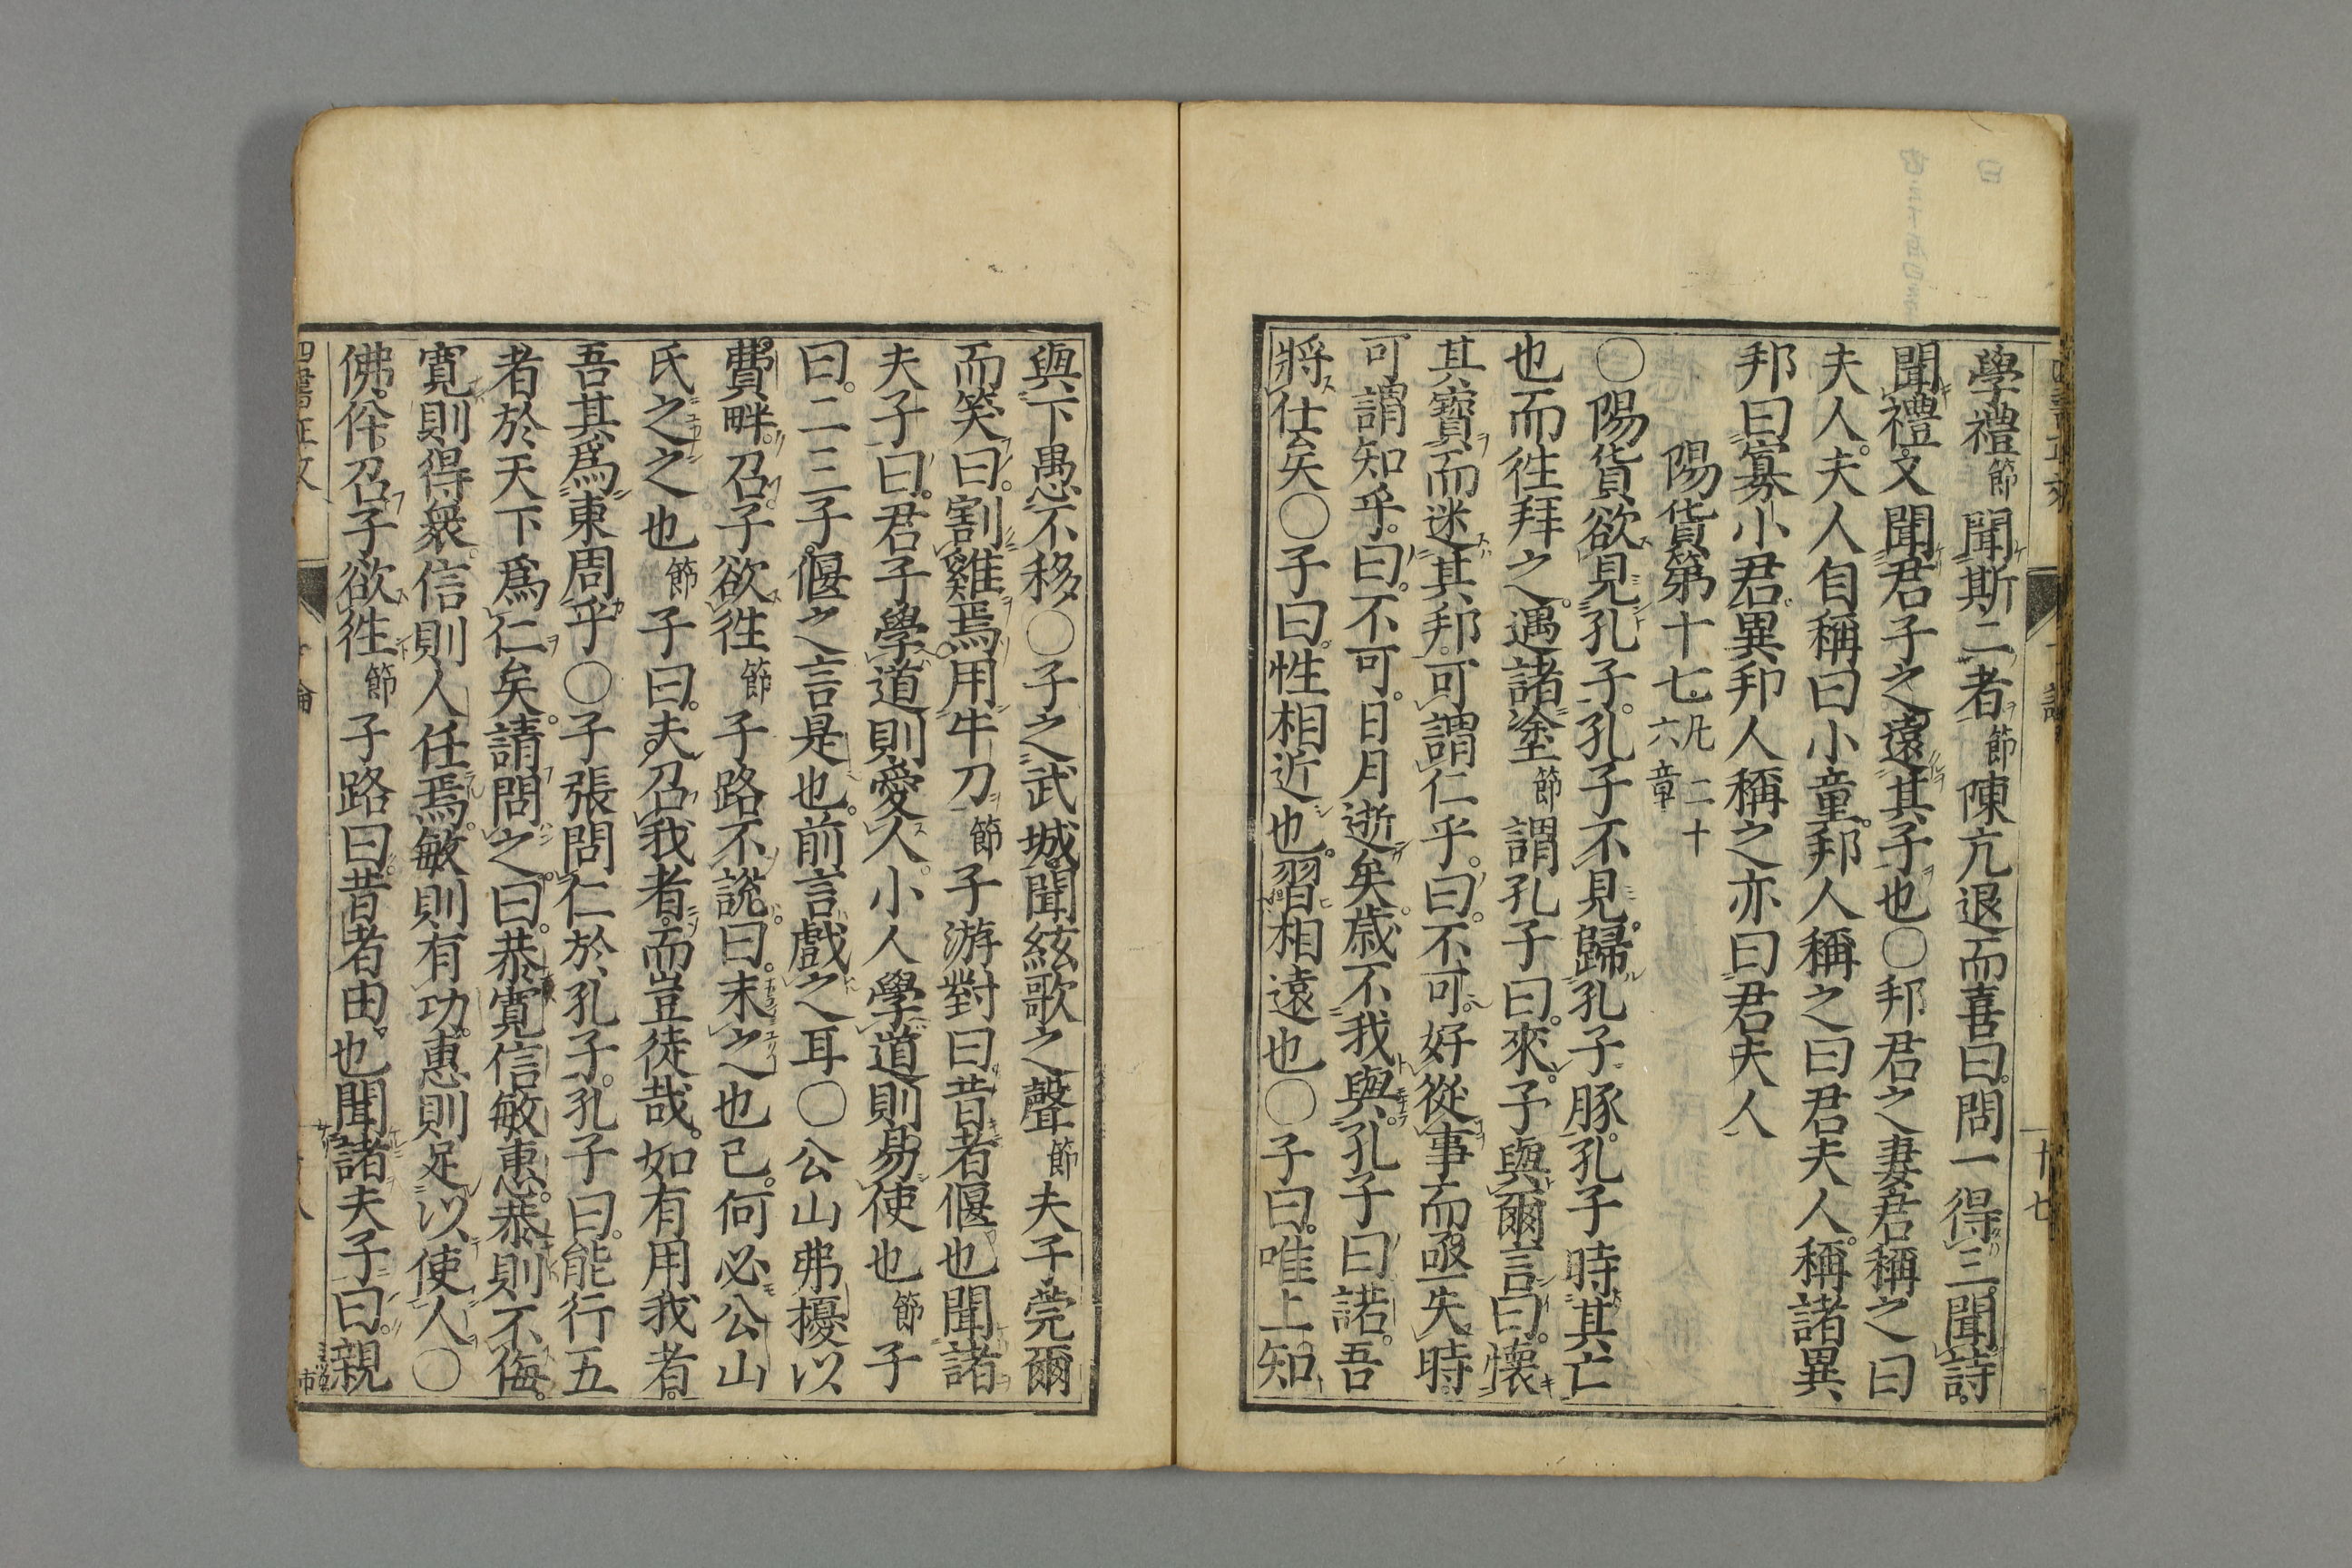 學禮節聞斯二者節陳亢退而喜曰問一得三聞詩
聞禮又聞君子之遠其子也〇邦君之妻君稱之曰
夫人夫人自稱曰小童邦人稱之曰君夫人稱諸異
邦曰寡小君異邦人稱之亦曰君夫人
陽貨第十七凡二十六章
〇陽貨欲見孔子孔子不見歸孔子豚孔子時其亡
也而徃拜之遇諸塗節謂孔子曰來予與爾言曰懷
其寶而迷其邦可謂仁乎曰不可好從事而亟失時
可謂知乎曰不可日月逝矣歲不我與孔子曰諾吾
將仕矣〇子曰性相近也習相遠也〇子曰唯上知
與下愚不移〇子之武城聞絃歌之聲節夫子莞爾
而笑曰割雞焉用牛刀節子游對曰昔者偃也聞諸
夫子曰君子學道則愛人小人學道則易使也節子
曰二三子偃之言是也前言戲之耳〇公山弗擾以
費畔召子欲徃節子路不說曰末之也已何必公山
氏之之也節子曰夫召我者而豈徒哉如有用我者
吾其爲東周乎〇子張問仁於孔子孔子曰能行五
者於天下爲仁矣請問之曰恭寬信敏惠恭則不侮
寬則得衆信則人任焉敏則有功惠則足以使人〇
佛肸召子欲徃節子路曰昔者由也聞諸夫子曰親